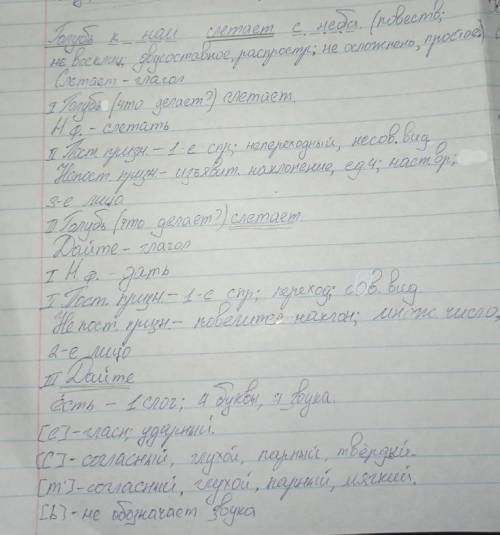 Голубь к нам слетает с неба. (повеств;
не восклиц; двусоставное, распростр; не осложнено, простое)
Слетает - глагол
I Голубь (что делает?) слетает.
Н.ф. - слетать
II Пост. призн. - 1-е спр; непереходный, несов. вид
Непост. призн - изъявит. наклонение, ед.ч; наст. вр;
3-е лицо
III Голубь (что делает?) слетает.
Дайте - глагол
I Н.ф. - дать
I Пост. призн. - 1-е спр; переход; сов. вид
Непост. призн. - повелит. наклон; множ. число,
2-е лицо
III Дайте
Есть - 1 слог; 4 буквы, 3 звука
[е] - гласн. ударный.
[с] - согласный, глухой, парный, твёрдый.
[т'] - согласный, глухой, парный, мягкий.
[ь] - не обозначает звука